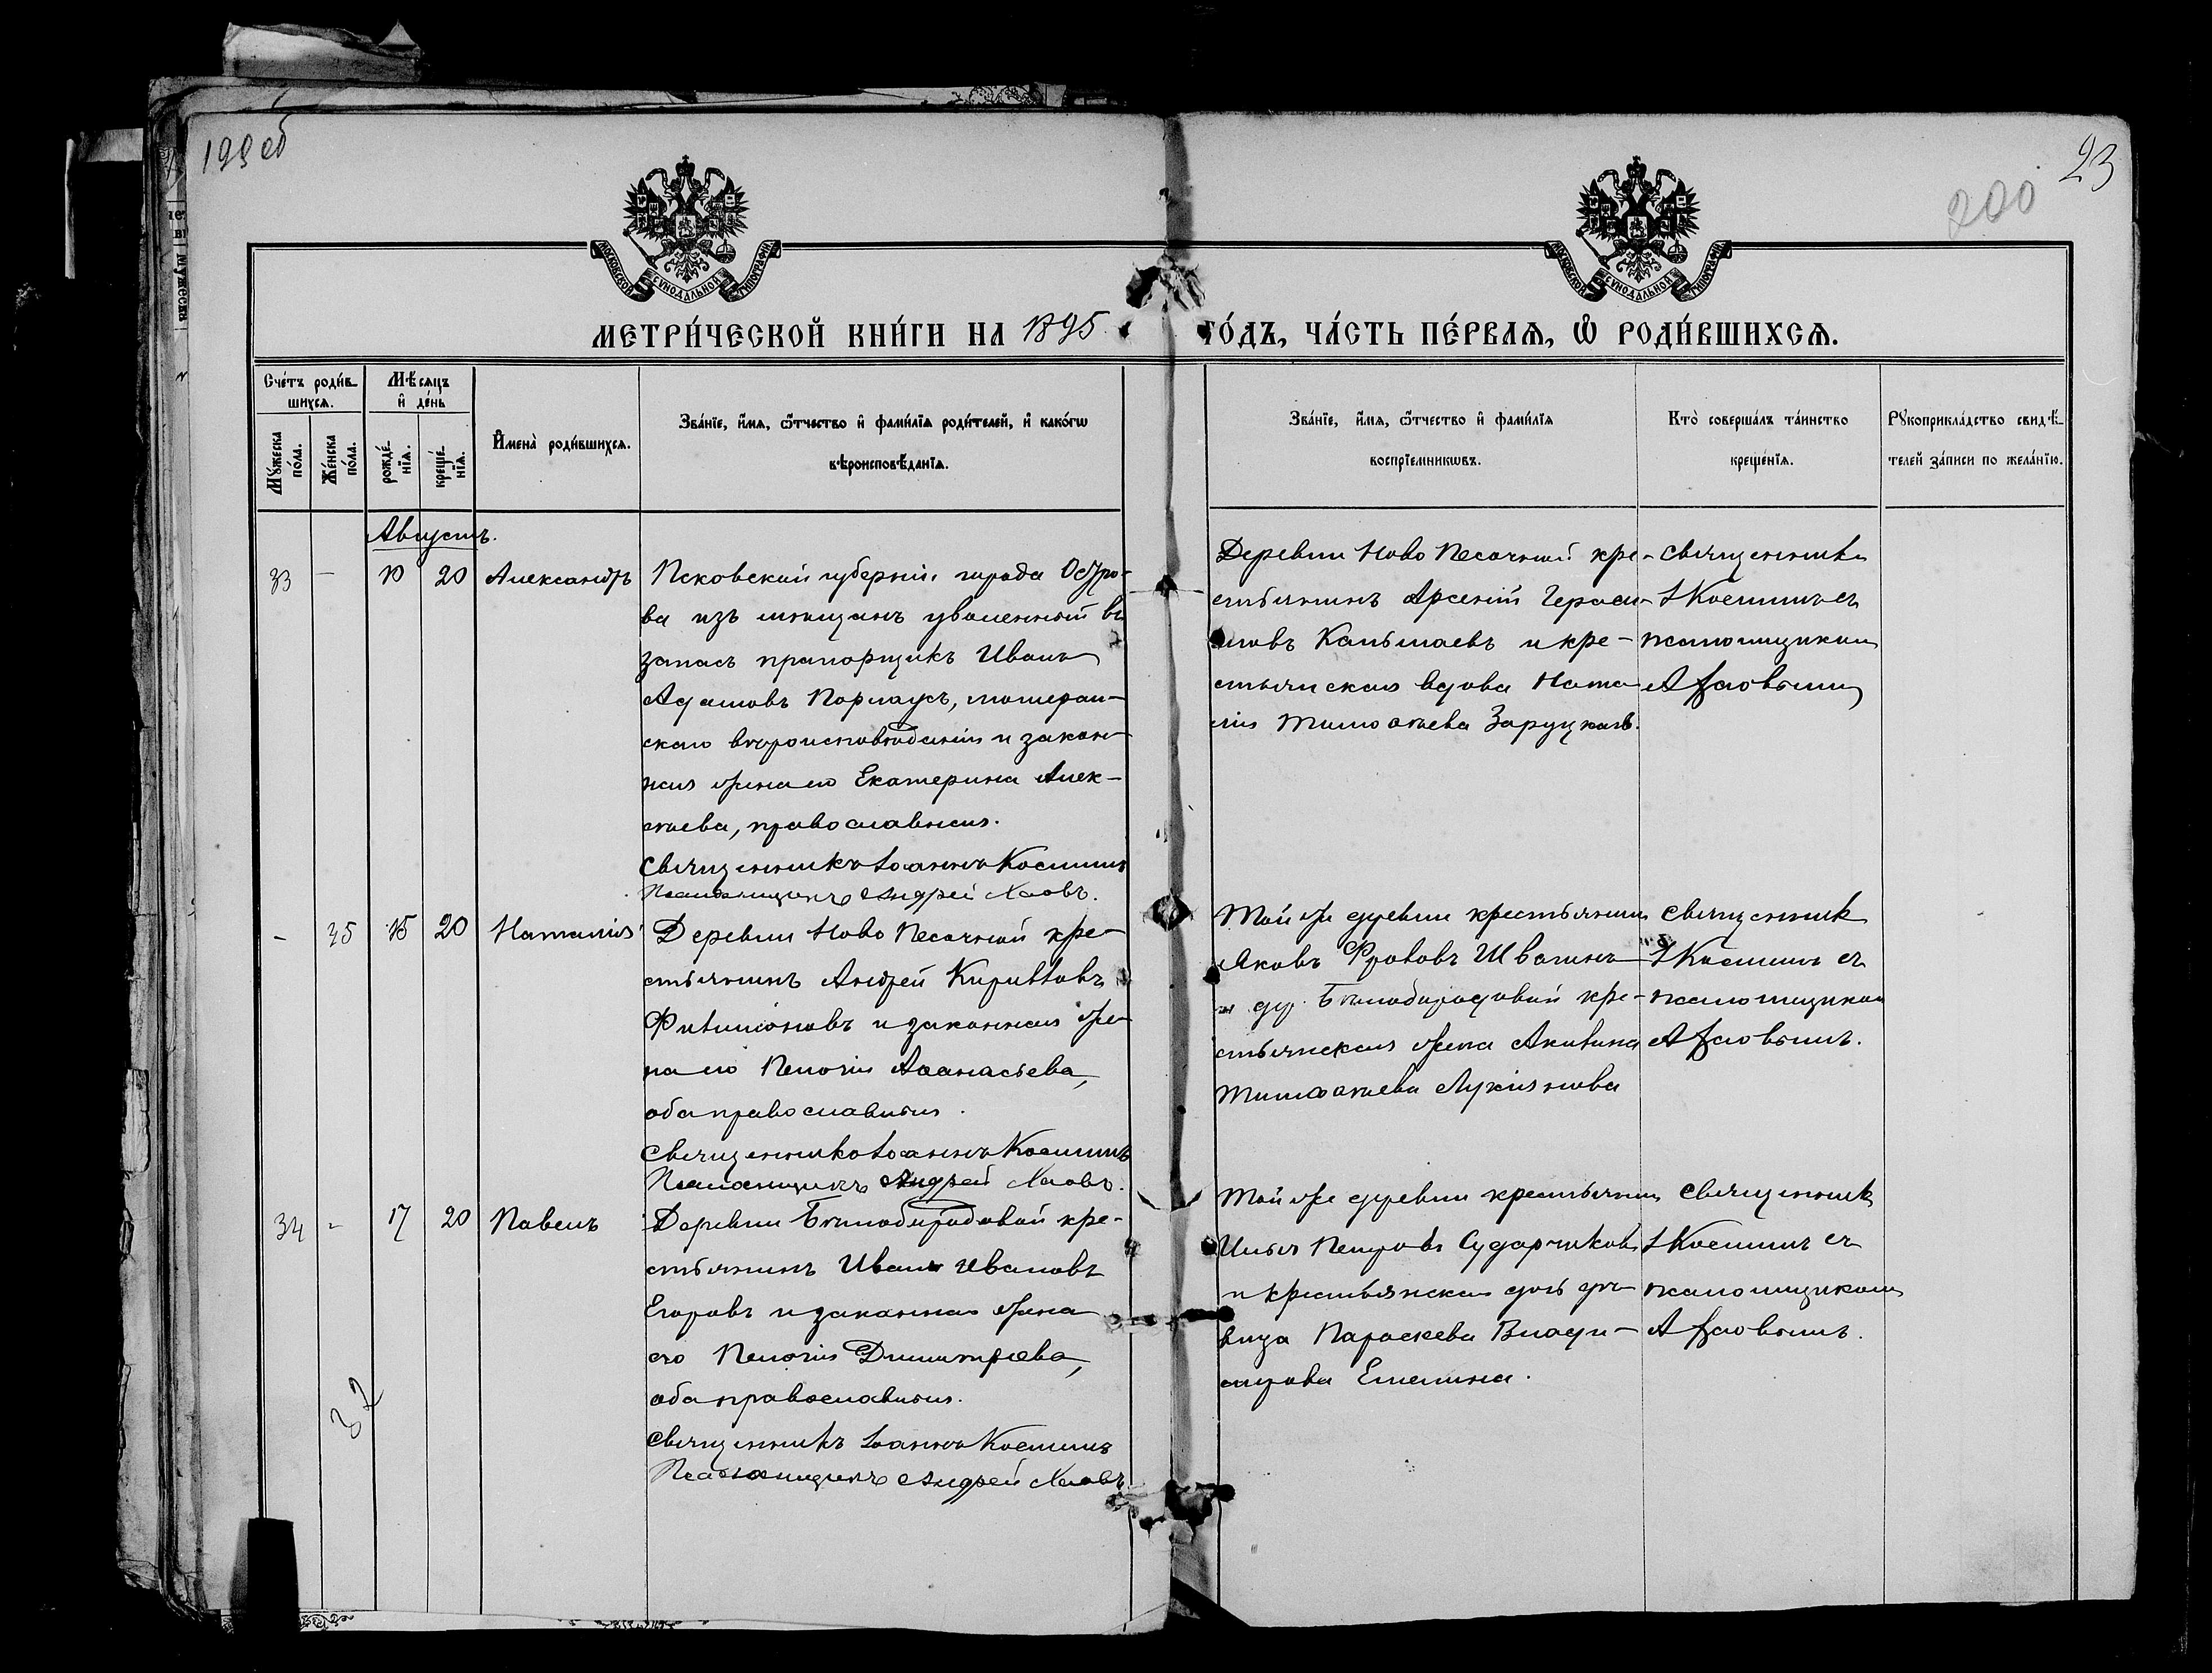 199 об
23
200
МОСКОВСКОЙ СѴНОДАЛЬНОЙ ТИПОГРАФІИ
МОСКОВСКОЙ СѴНОДАЛЬНОЙ ТИПОГРАФІИ
МЕТРИ́ЧЕСКОЙ КНИ́ГИ НА 1895 ГО́ДЪ, ЧА́СТЬ ПЕ́РВАЯ, Ѡ҆ РОДИ́ВШИХСЯ.
Сче́тъ роди́в-
шихся.
Мѣ́сяцъ
и҆ де́нь
Мꙋ́жеска по́ла.
Же́нска по́ла.
рожде́-
нїя.
креще́-
нїя.
И҆мена̀ роди́вшихся.
Зва́нїе, и҆́мя, ѻ҆́тчество и҆ фамилі́я роди́телей, и҆ како́гѡ
вѣроисповѣ́данїя.
Зва́нїе, и҆́мя, ѻ҆́тчество и҆ фами́лїя
воспрїе́мникѡвъ.
Кто̀ соверша́лъ та́инство
креще́нїя.
Рꙋкоприкла́дство свидѣ́-
телей за́писи по жела́нїю.
Августъ.
33 - 10 20 Александръ
Псковской губерніи города Остро-
ва изъ мѣщанъ уволенный въ
запасъ прапорщикъ Иванъ
Адамовъ Порлаусъ, лютеран-
скаго вѣроисповѣданія и закон-
ная жена его Екатерина Алек-
сѣева, православная.
Священникъ Іоаннъ Косминъ
Псаломщикъ Андрей Хаовъ.
Деревни Ново Песочной кре-
стьянинъ Арсеній Гераси-
мовъ Калымаевъ и кре-
стьянская вдова Ната-
лія Тимоѳеева Заруцкая.
Священникъ
І Косминъ съ
псаломщикомъ
А Хаовымъ
- 35 15 20 Наталія
Деревни Ново Песочной кре-
стьянинъ Андрей Кирилловъ
Филимоновъ и законная же-
на его Пелагія Аѳанасьева,
оба православныя.
Священникъ Іоаннъ Косминъ
Псаломщикъ Андрей Хаовъ.
Той же деревни крестьянинъ
Яковъ Фроловъ Швагинъ
и дер. Бѣлобородовой кре-
стьянская жена Акилина
Тимоѳеева Лукіянова
Священникъ
І Косминъ съ
псаломщикомъ
А Хаовымъ.
34 - 17 20 Павелъ
Деревни Бѣлобородовой кре-
стьянинъ Иванъ Ивановъ
Егоровъ и законная жена
его Пелагія Димитріева,
оба православныя.
Священникъ Іоаннъ Косминъ
Псаломщикъ Андрей Хаовъ
Той же деревни крестьянинъ
Илья Петровъ Сударчиковъ
и крестьянская дочь дѣ-
вица Параскева Влади-
мірова Емелина.
Священникъ
І Косминъ съ
псаломщикомъ
А Хаовымъ.
32